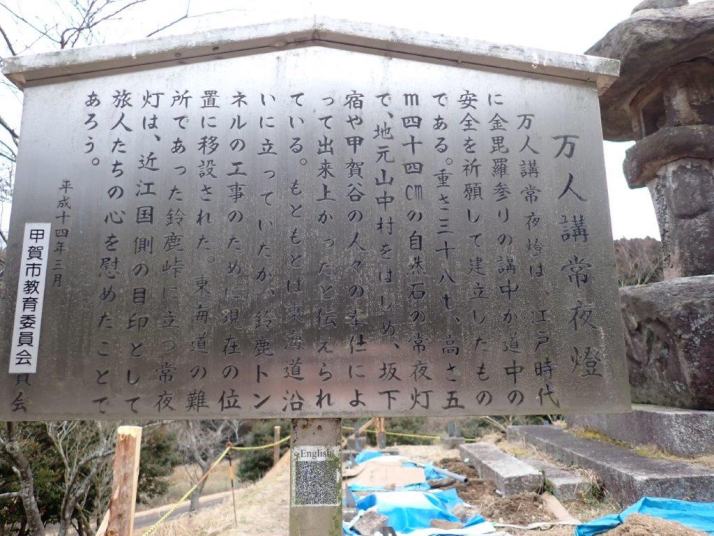 万人講常夜燈
万人講常夜燈は、江戸時代
に金毘羅参りの講中が道中の
安全を祈願して建立したもの
である。重さ三十八t、高さ五
m四十四cmの自然石の常夜灯
で、地元山中村をはじめ、坂下
宿や甲賀谷の人々の奉仕によ
って出来上がったと伝えられ
ている。もともとは東海道沿
いに立っていたが、鈴鹿トン
ネルの工事のために現在の位
置に移設された。東海道の難
所であった鈴鹿峠に立つ常夜
灯は、近江国側の目印として
旅人たちの心を慰めたことで
あろう。
平成十四年三月
甲賀市教育委員会
員会
English